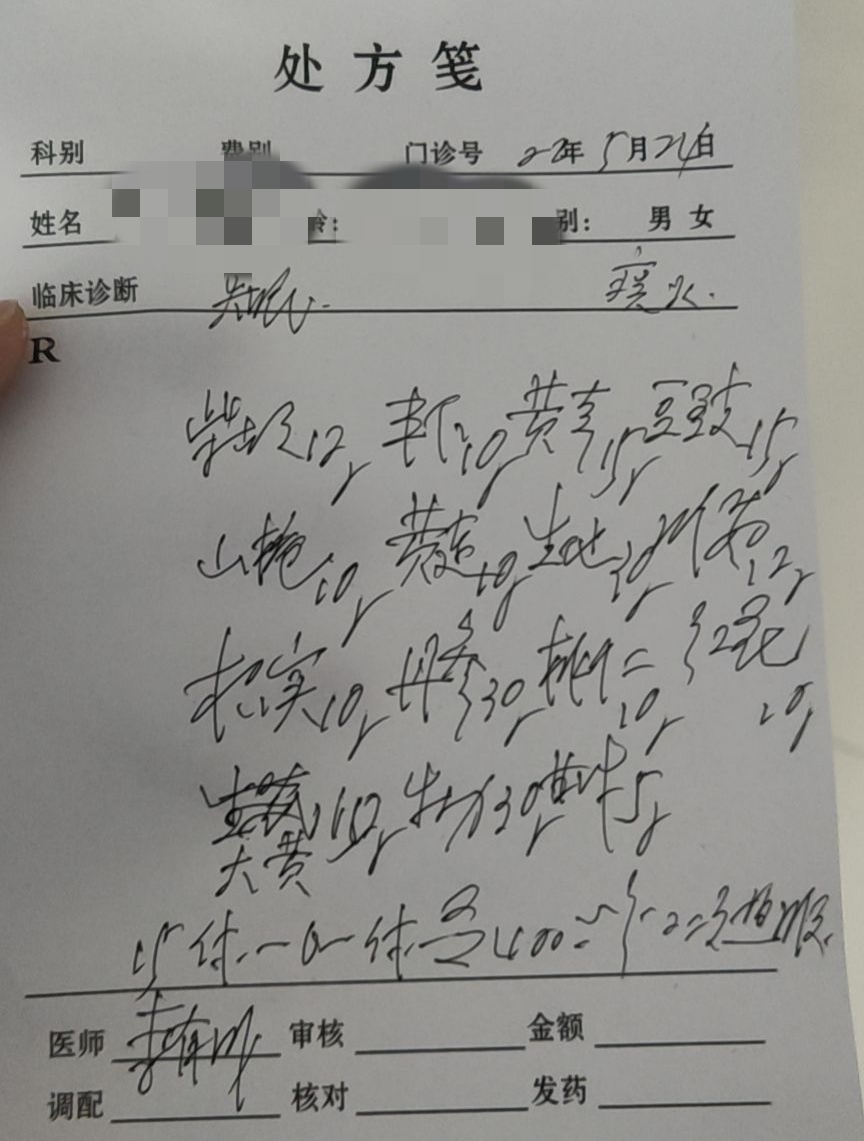 处方笺
科别 费别 门诊号 22年5月24日
姓名 龄: 别: 男 女
临床诊断 失眠 痰火.
R
柴胡12g 半下10g 黄芩15g 豆豉15g
山栀10g 黄连10g 生地30g 川芎12g
枳实10g 丹参30g 桃仁10g 红花10g
大黄 牡力30g 甘草5g
15付.一日一付.
医师 审核 金额
调配 核对 发药